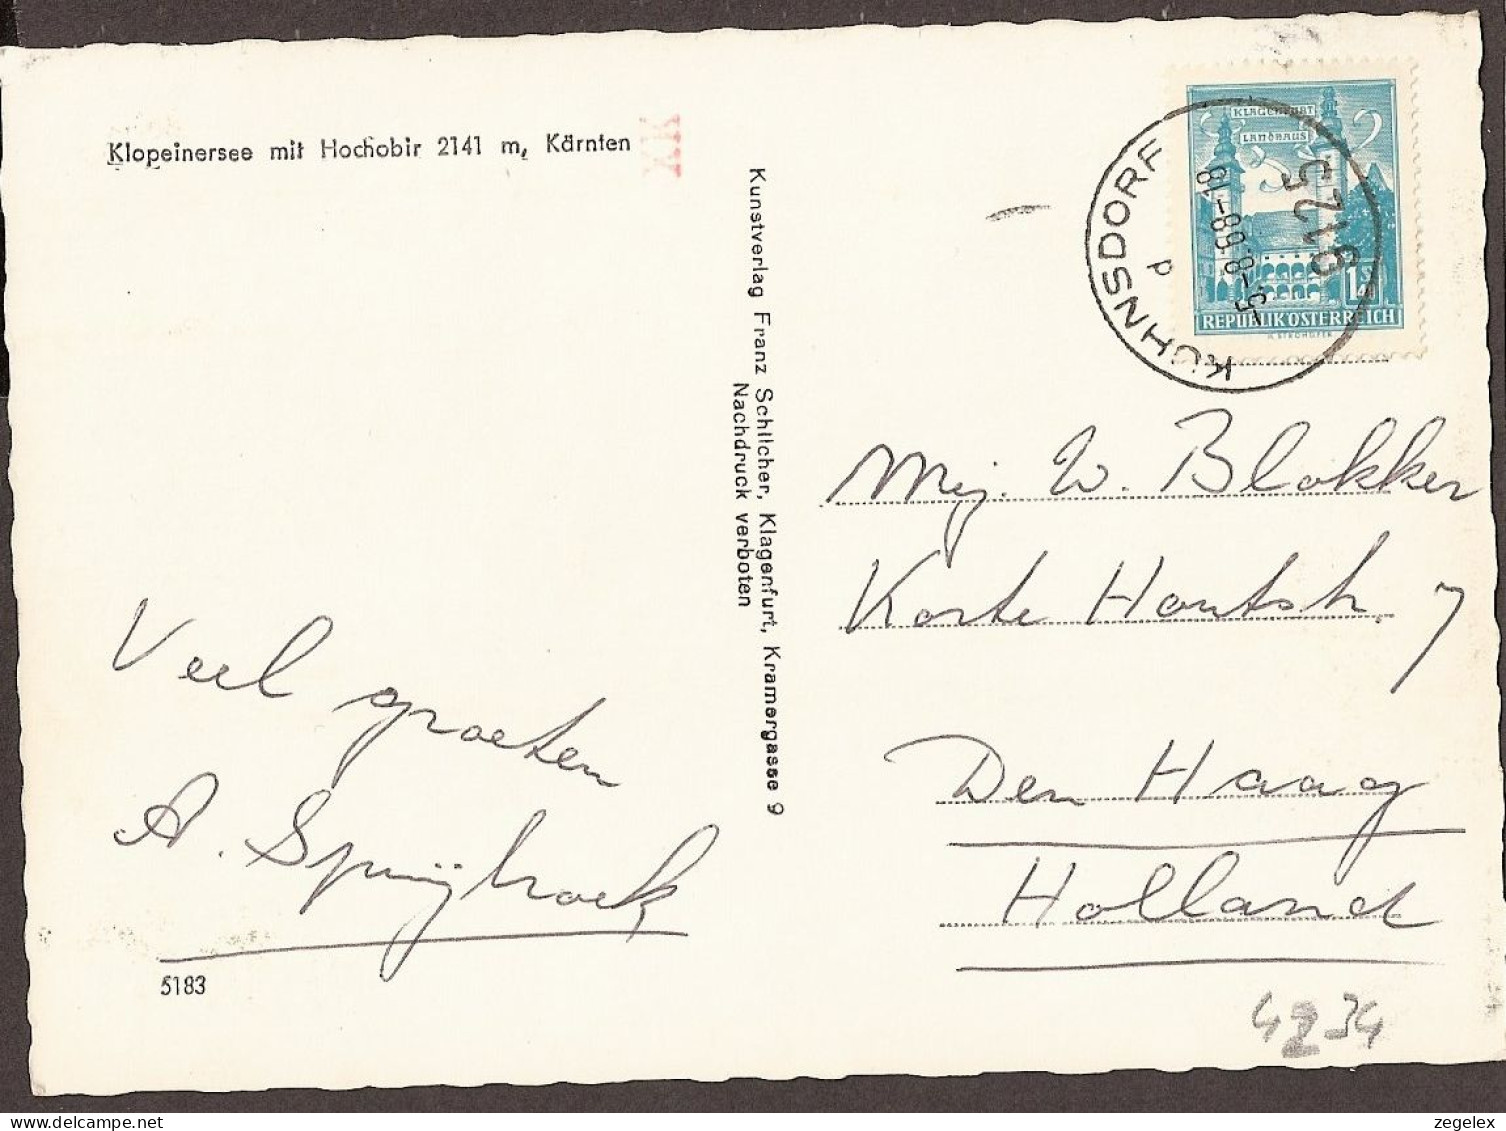 Klopeinersee mit Hochobir 2141 m, Kärnten
Kunstverlag Franz Schilcher, Klagenfurt, Kramergasse 9
Nachdruck verboten
KLAGENFURT
LANDHAUS
1S
REPUBLIK ÖSTERREICH
KÜHNSDORF
9125
p
Mej. W. Blokker
Korte Houtstr. 7
Den Haag
Holland
Veel groeten
A. Spruijtroek
5183
4234
zegelex